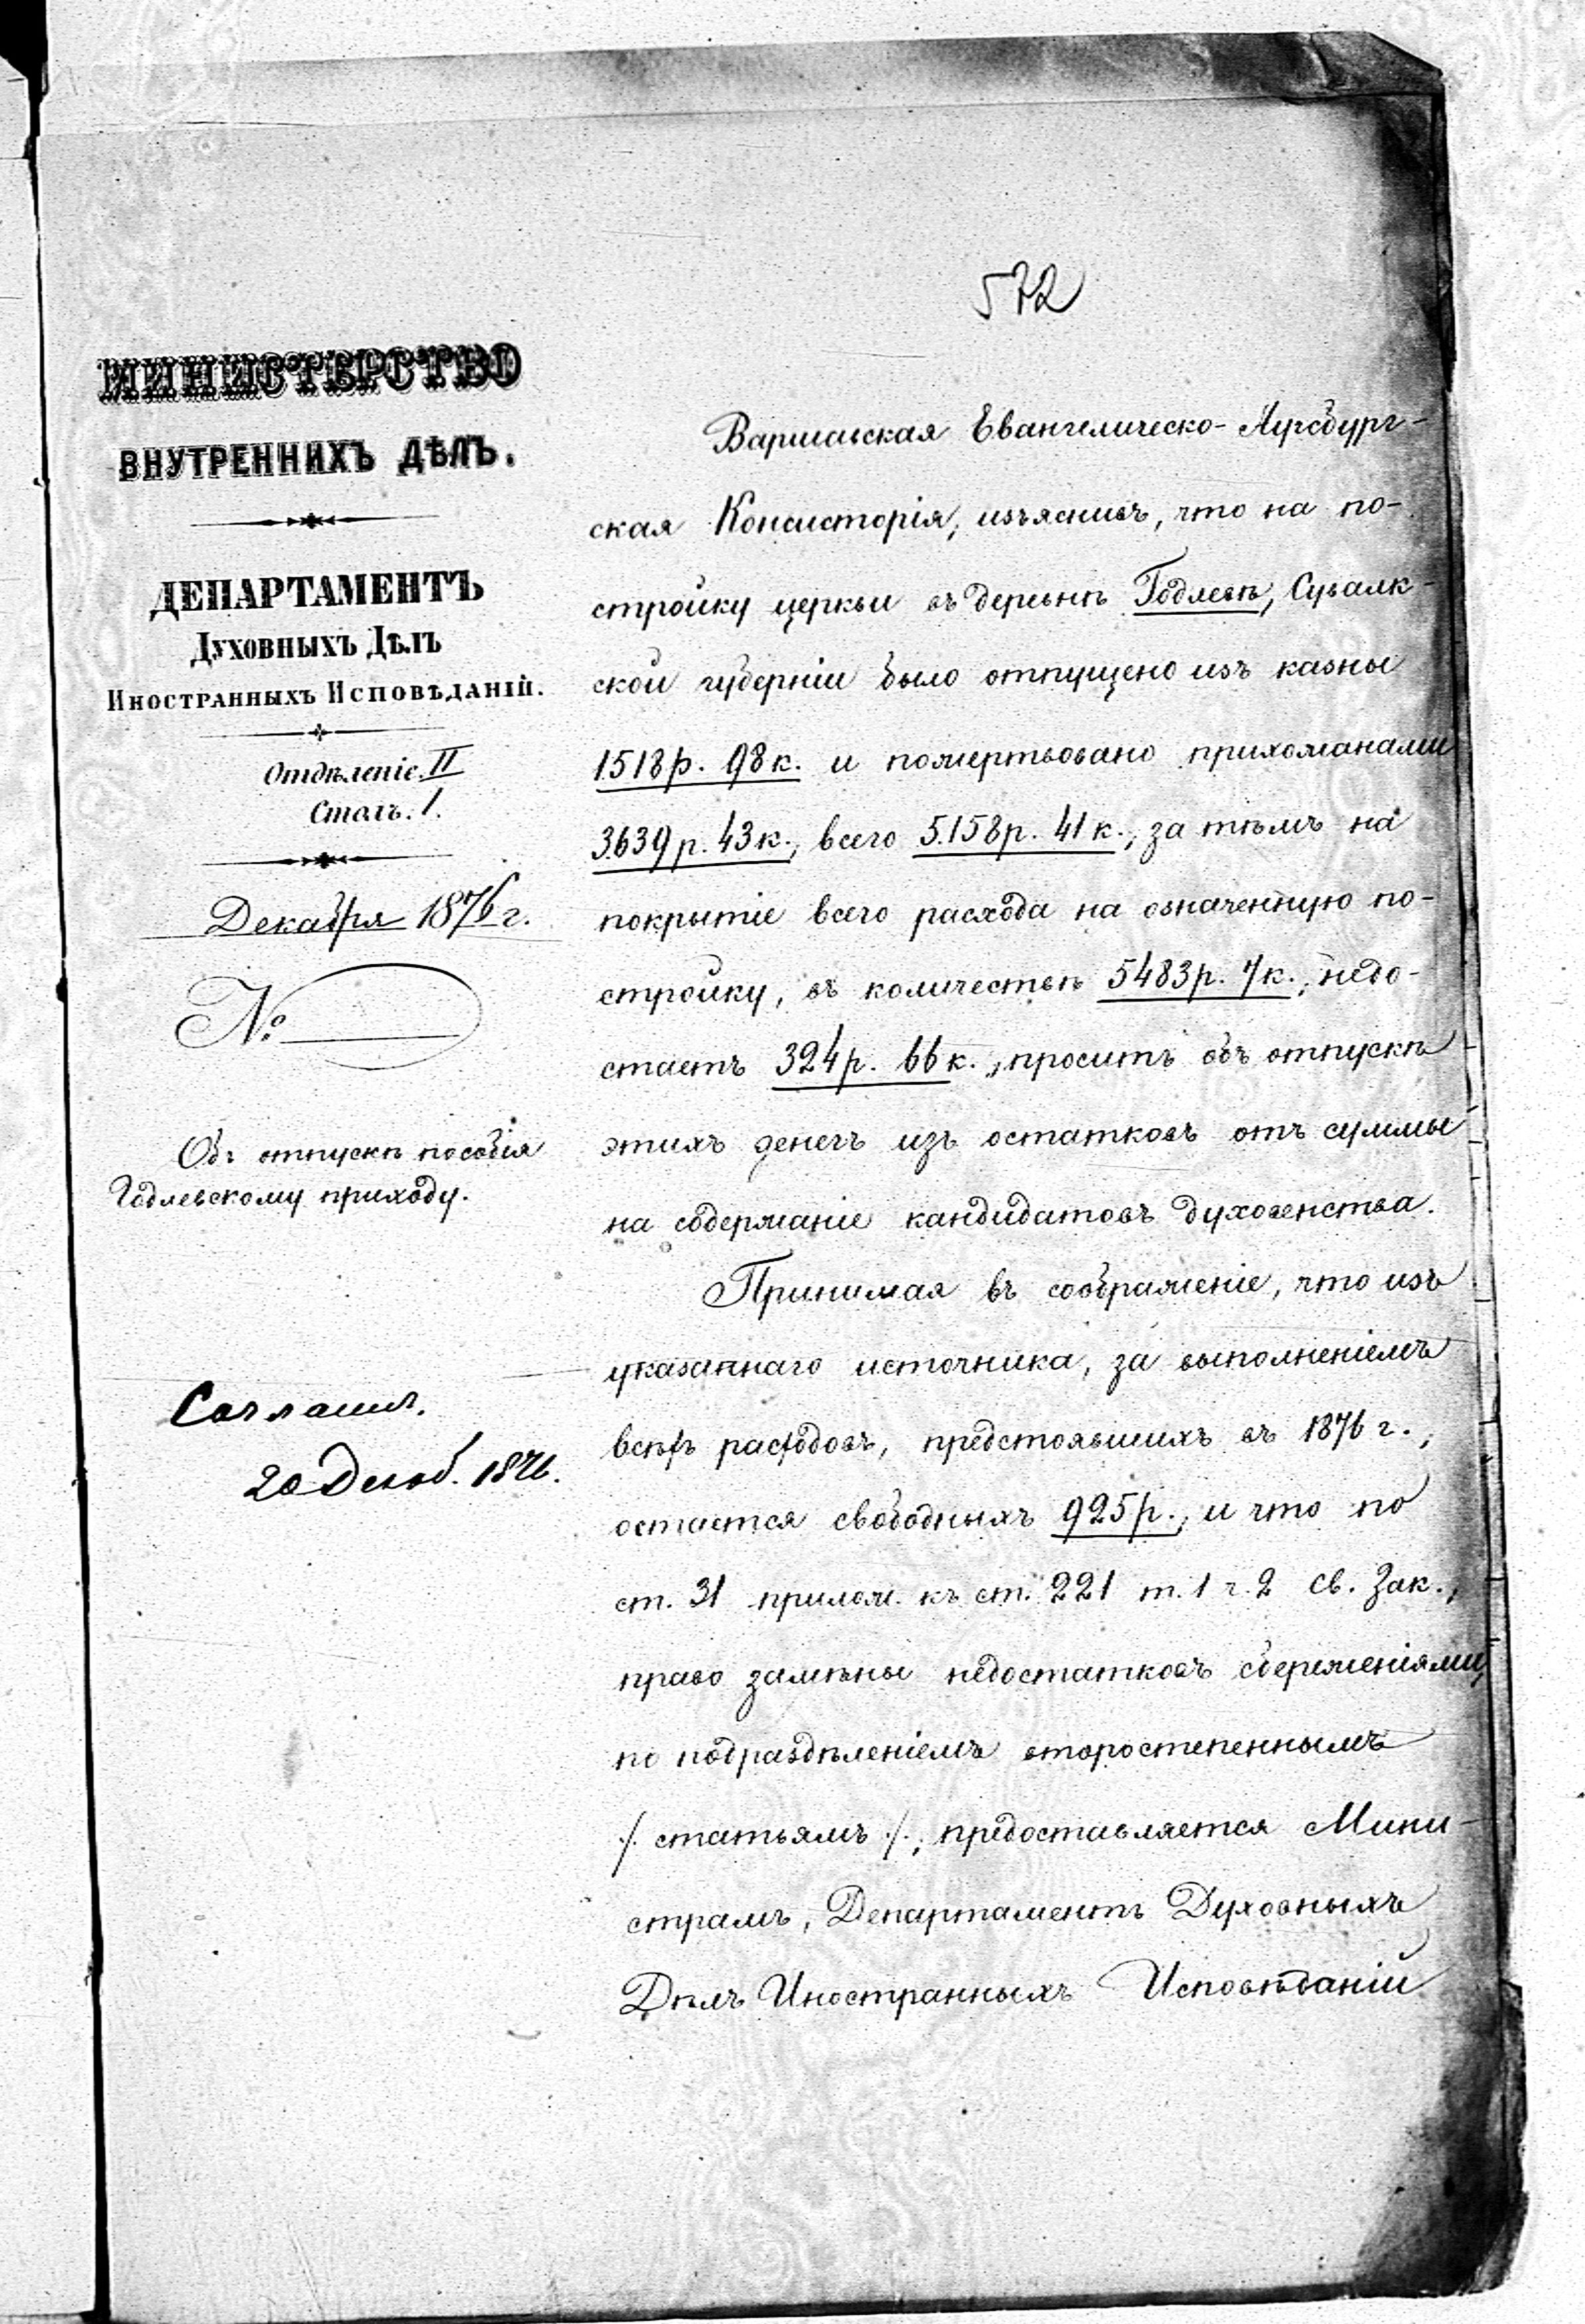 572
МИНИСТЕРСТВО
ВНУТРЕННИХЪ ДѢЛЪ.
ДЕПАРТАМЕНТЪ
ДУХОВНЫХЪ ДѢЛЪ
ИНОСТРАННЫХЪ ИСПОВѢДАНІЙ.
Отдѣленіе. II
Столъ. 1.
Декабря 1876 г.
№
Объ отпускѣ пособія
Годлевскому приходу.
Согласит.
20 Декаб. 1876.
Варшавская Евангелическо-Аугсбург-
ская Консисторія, изъяснивъ, что на по-
стройку церкви въ деревнѣ Годлевѣ, Сувалк-
ской губерніи было отпущено изъ казны
1518 р. 98 к. и пожертвовано прихожанами
3.639 р. 43 к., всего 5.158 р. 41 к., за тѣмъ на
покрытіе всего расхода на означенную по-
стройку, въ количествѣ 5483 р. 7 к., недо-
стаетъ 324 р. 66 к., проситъ объ отпускѣ
этихъ денегъ изъ остатковъ отъ суммы
на содержаніе кандидатовъ духовенства.
Принимая въ соображеніе, что изъ
указаннаго источника, за выполненіемъ
всѣхъ расходовъ, предстоявшихъ въ 1876 г.,
остается свободныхъ 925 р., и что по
ст. 31 прилож. къ ст. 221 т. 1 ч. 2 Св. Зак.,
право замѣны недостатковъ сбереженіями,
по подраздѣленіемъ второстепеннымъ
/. статьямъ ./, предоставляется Мини-
страмъ, Департаментъ Духовныхъ
Дѣлъ Иностранныхъ Исповѣданій